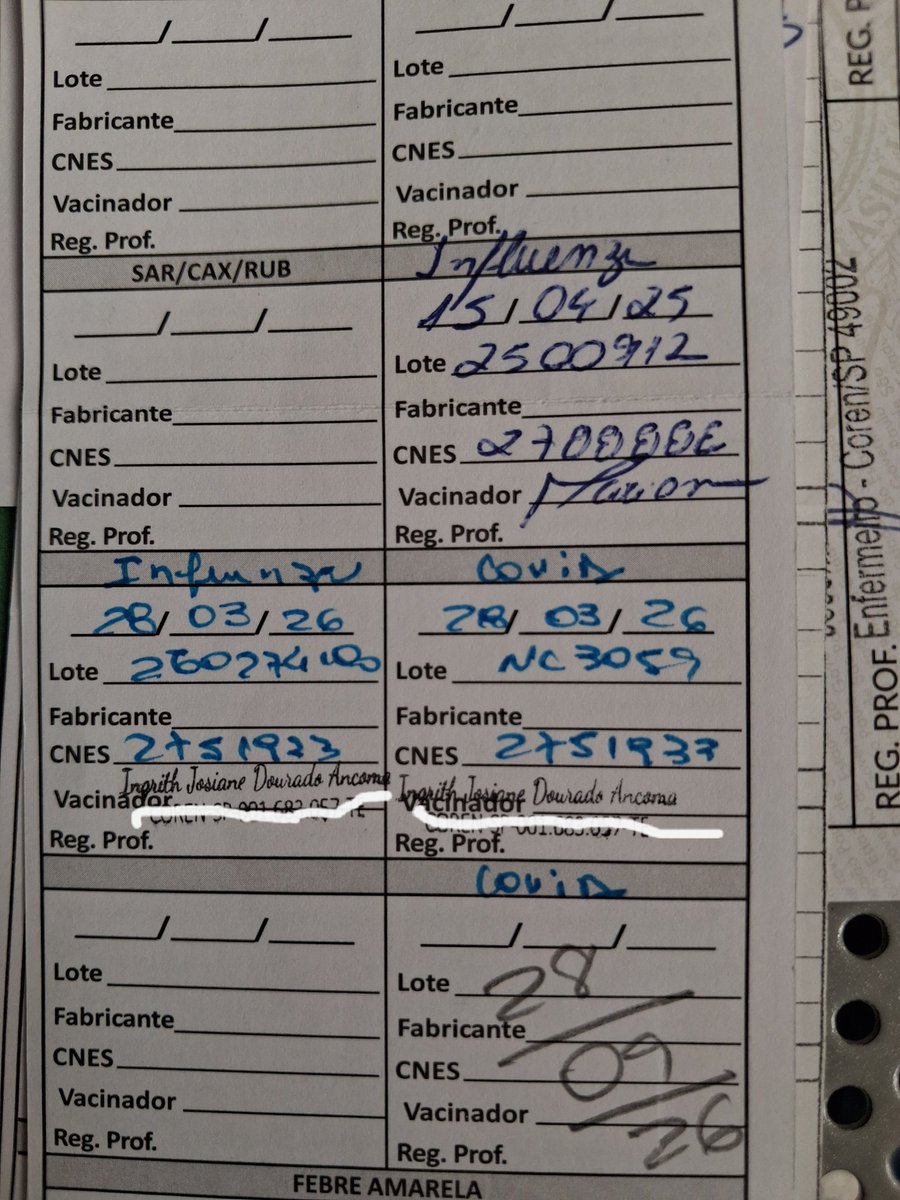 __/__/__
Lote
Fabricante
CNES
Vacinador
Reg. Prof.
__/__/__
Lote
Fabricante
CNES
Vacinador
Reg. Prof.
SAR/CAX/RUB
__/__/__
Lote
Fabricante
CNES
Vacinador
Reg. Prof.
Influenza
15/04/25
Lote 2500912
Fabricante
CNES
Vacinador
Reg. Prof.
Influenza
28/03/26
Lote
Fabricante
CNES 2751933
Vacinador
Ingrith Josiane Dourado Ancoma
Reg. Prof.
Covid
28/03/26
Lote NC3059
Fabricante
CNES 2751933
Vacinador
Ingrith Josiane Dourado Ancoma
Reg. Prof.
__/__/__
Lote
Fabricante
CNES
Vacinador
Reg. Prof.
Covid
__/__/__
Lote
Fabricante
CNES
Vacinador
Reg. Prof.
28/09/26
FEBRE AMARELA
REG. P
REG. PROF. Enfermeiro - Coren/SP 49002